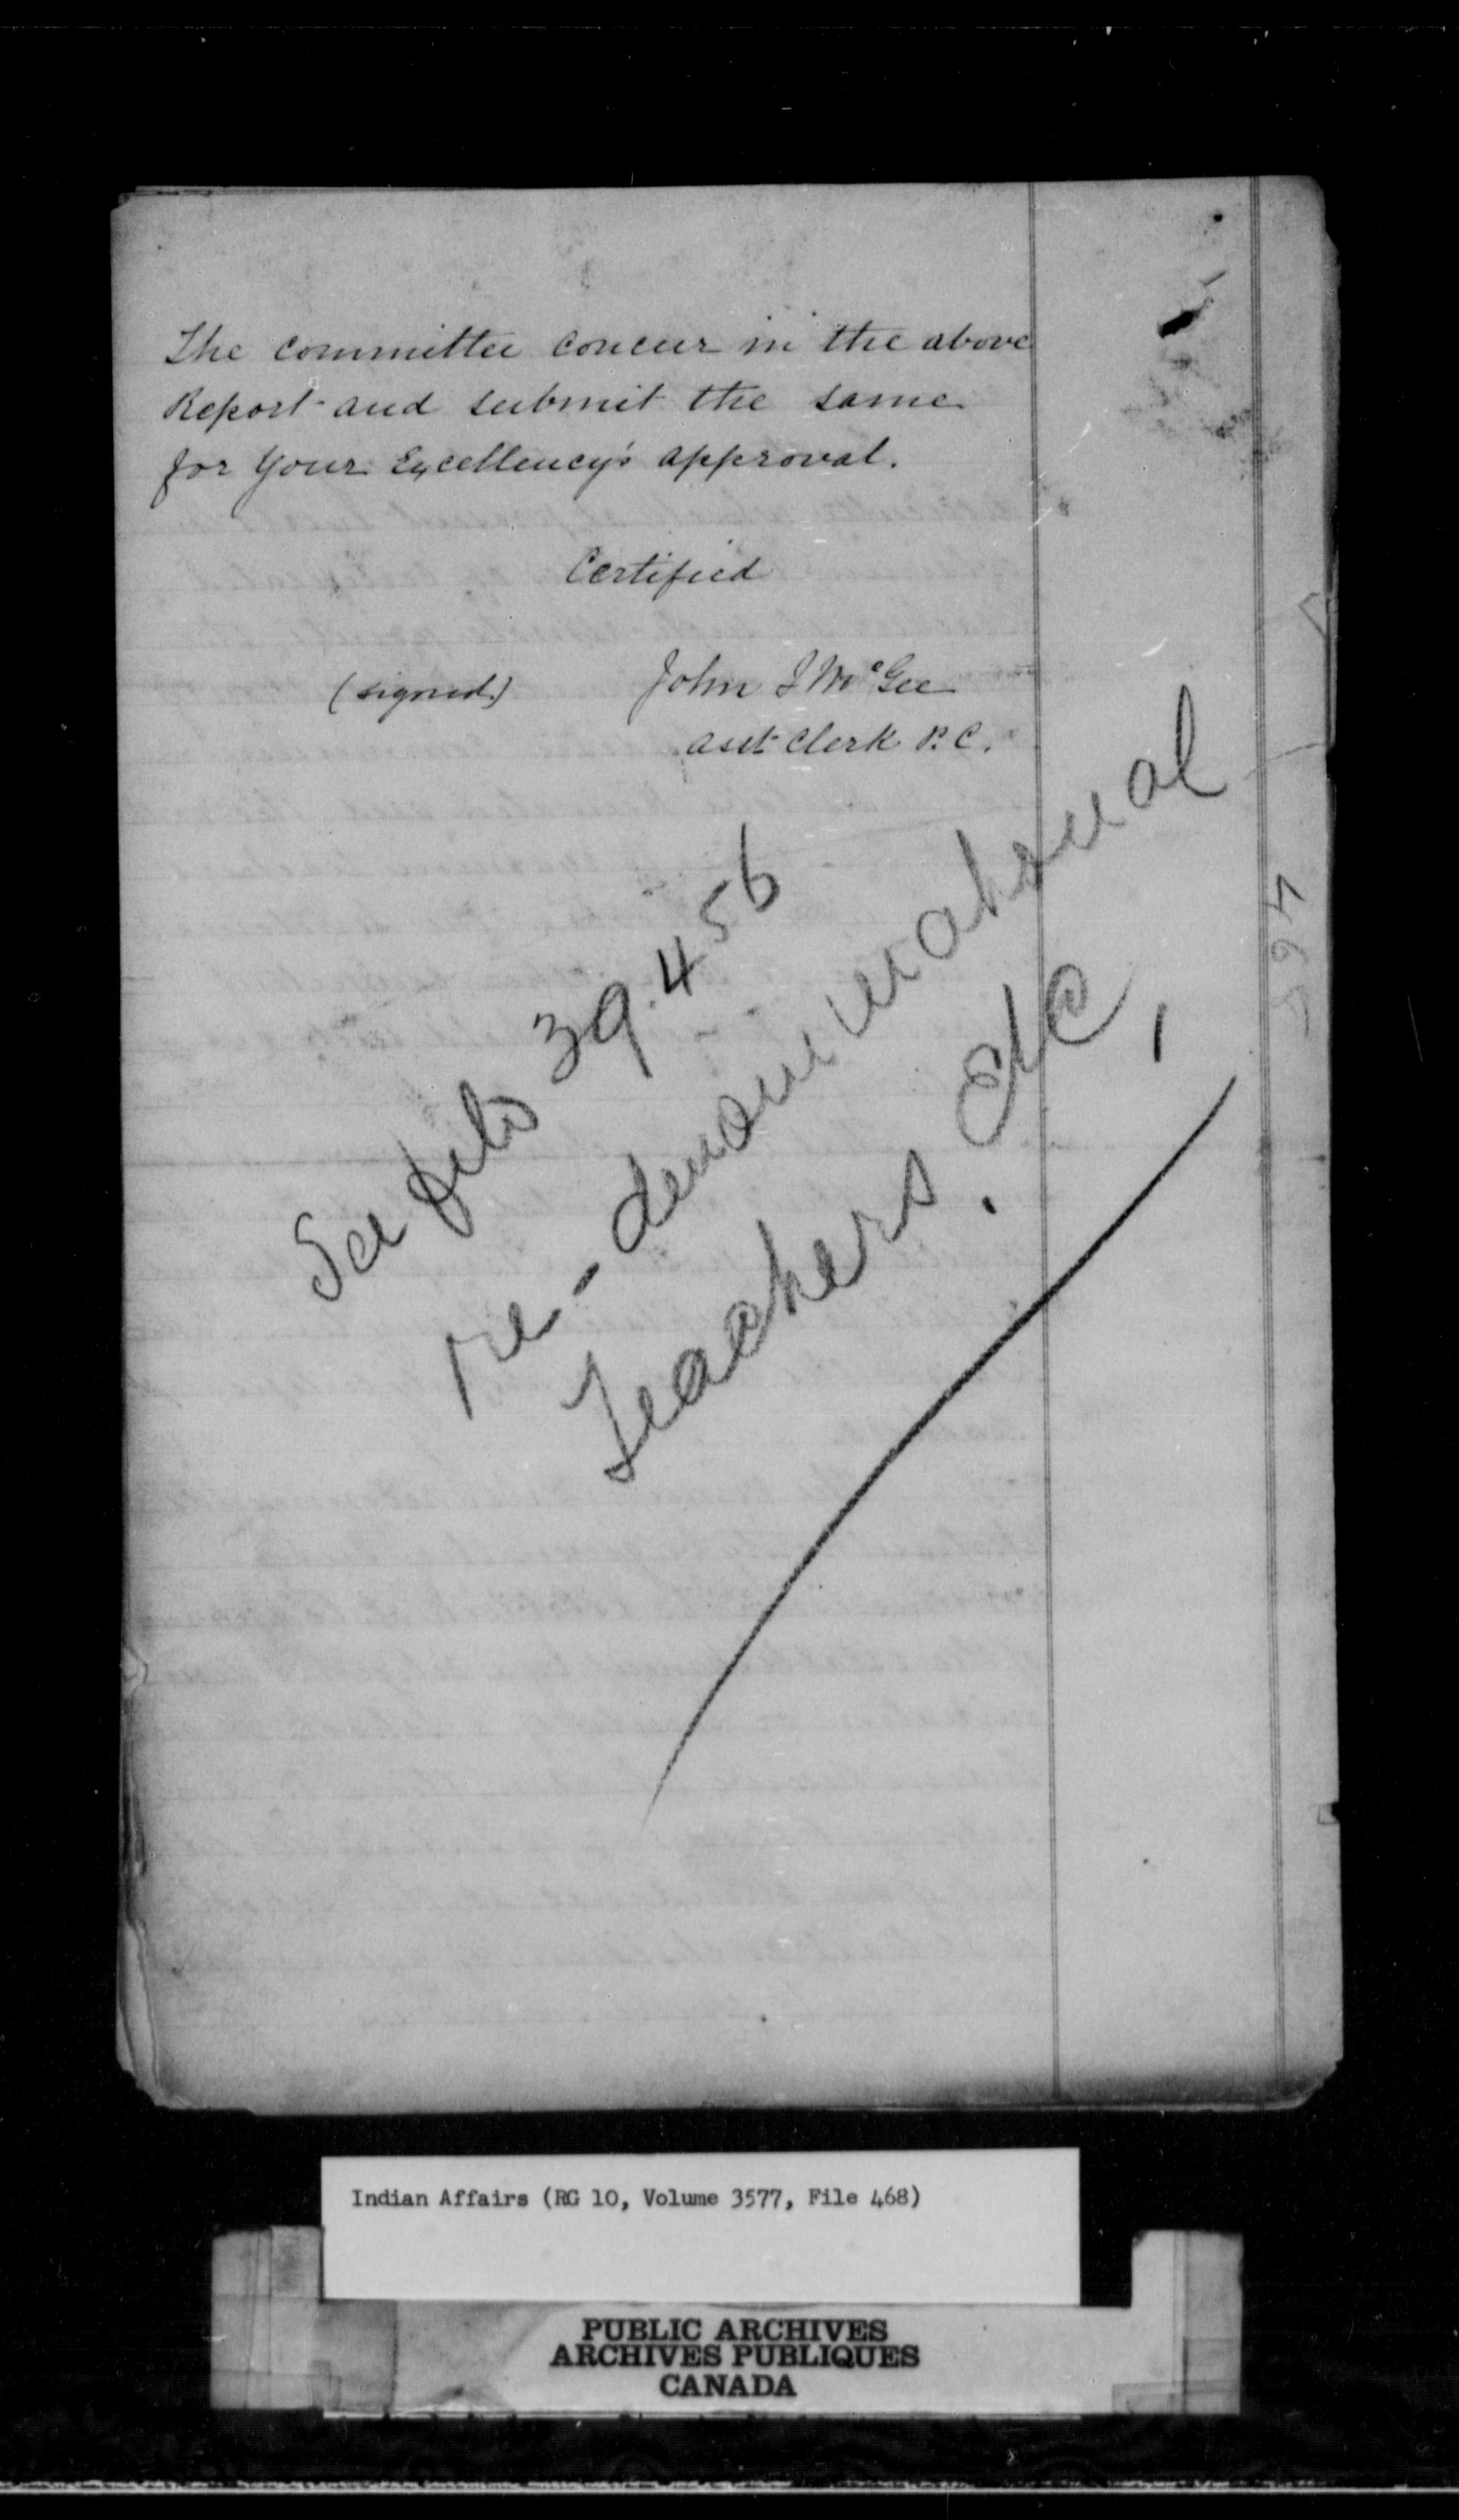 The committee concur in the above
Report and submit the same
for Your Excellency's approval.
Certified
(signed) John J McGee
asst Clerk P. C.
See file 39.456
re - denominational
Teachers. Etc,
Indian Affairs (RG 10, Volume 3577, File 468)
PUBLIC ARCHIVES
ARCHIVES PUBLIQUES
CANADA